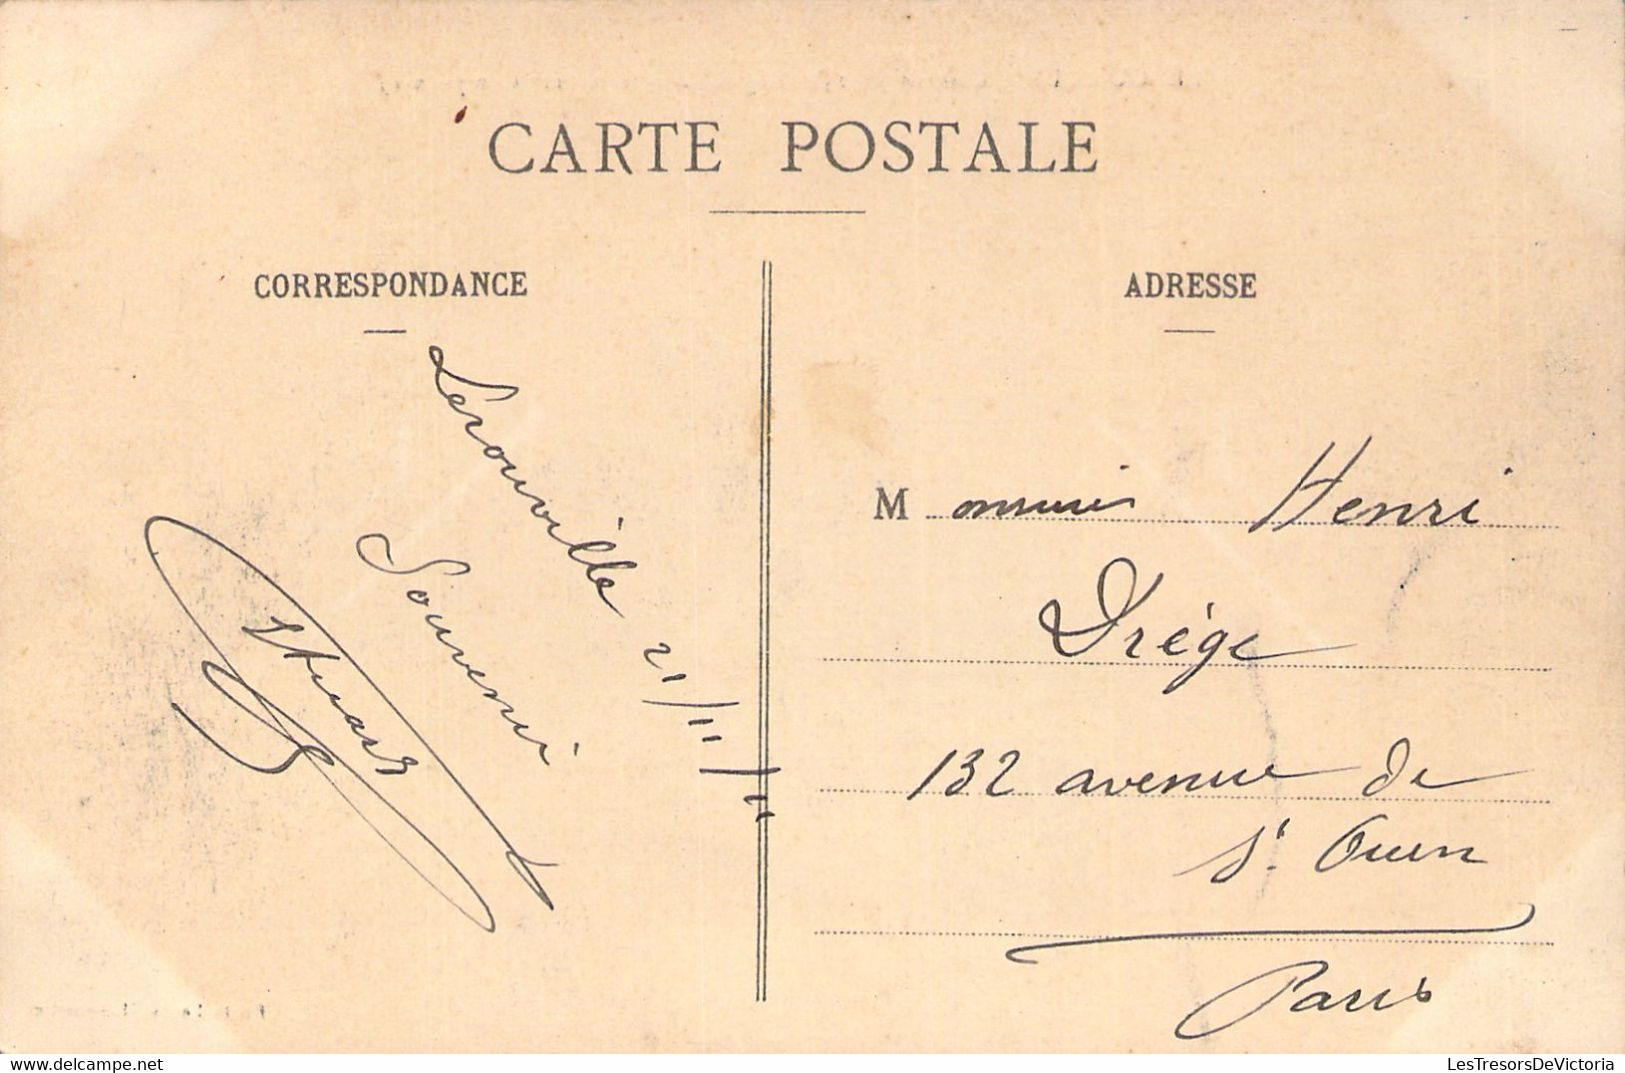 CARTE POSTALE
CORRESPONDANCE
Lerouville 21/11/11
Souvenir
ADRESSE
Monsieur Henri
Drège
132 avenue de
St. Ouen
Paris
delcampe.net
LesTresorsDeVictoria